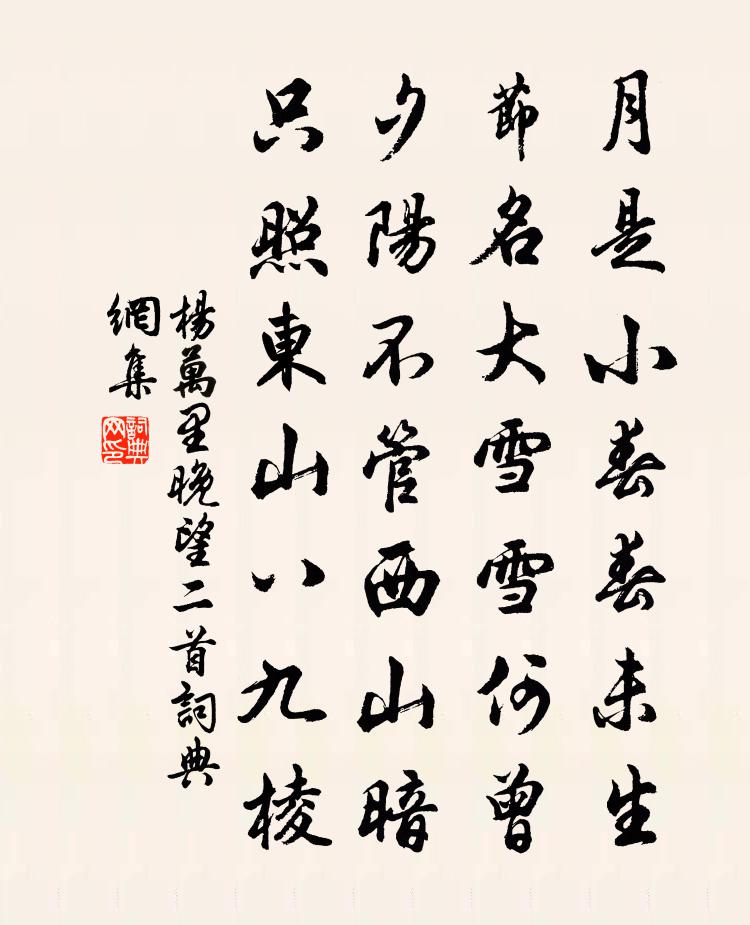 月是小春春未生
節名大雪雪何曾
夕陽不管西山暗
只照東山八九棱
楊萬里晚望二首詞典
網集
詞典
网印